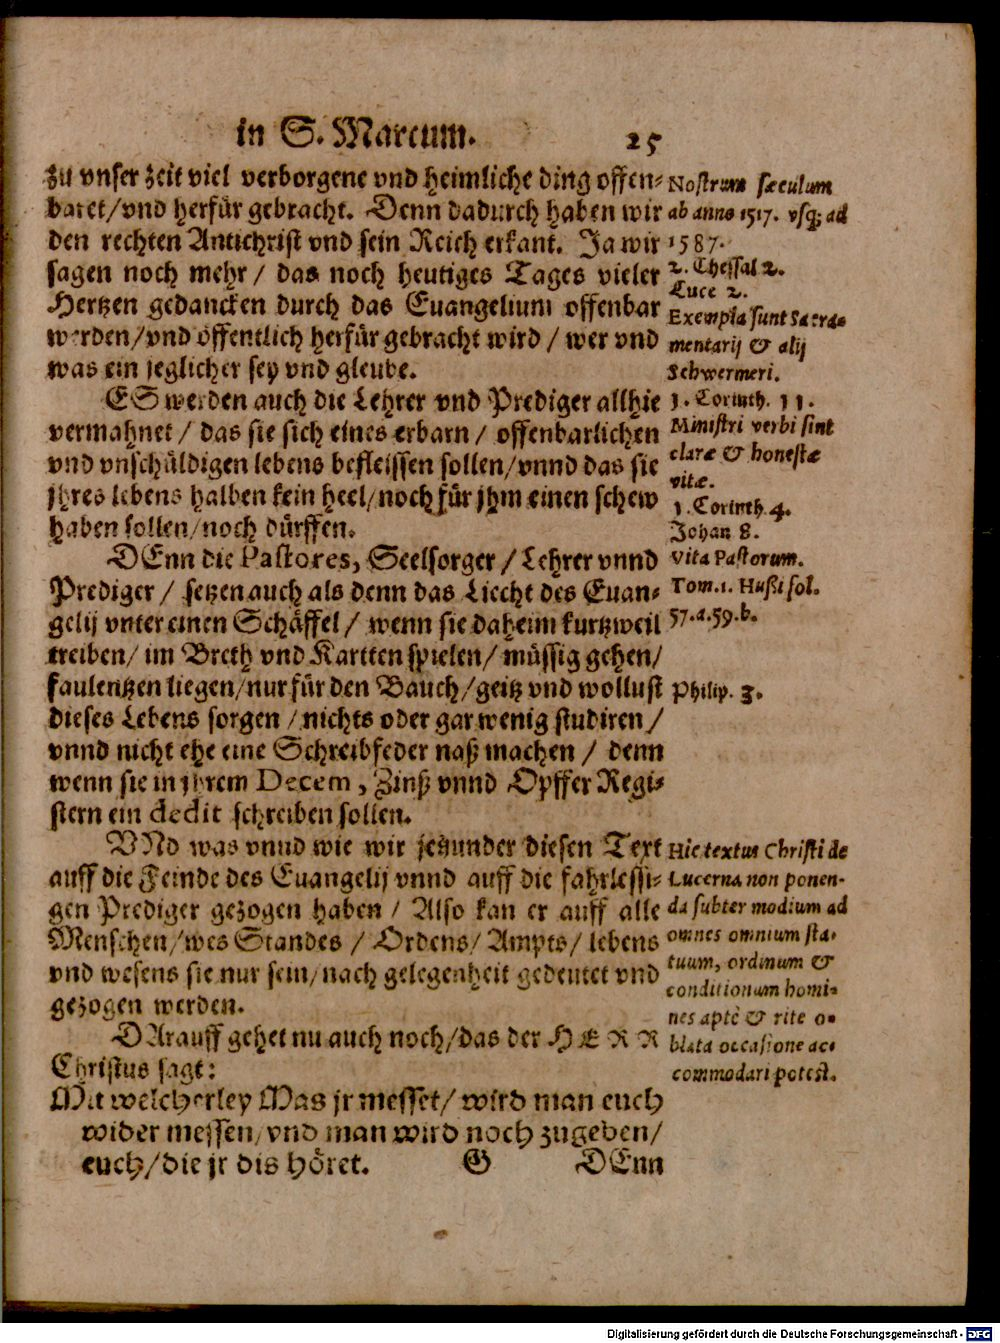 in S. Marcum. 25
zu vnser zeit viel verborgene vnd heimliche ding offen-
baret/vnd herfür gebracht. Denn dadurch haben wir
den rechten Antichrist vnd sein Reich erkant. Ja wir
sagen noch mehr / das noch heutiges Tages vieler
Hertzen gedancken durch das Euangelium offenbar
werden/vnd öffentlich herfür gebracht wird / wer vnd
was ein jeglicher sey vnd gleube.
ES werden auch die Lehrer vnd Prediger allhie
vermahnet / das sie sich eines erbarn / offenbarlichen
vnd vnschüldigen lebens befleissen sollen/vnnd das sie
jhres lebens halben kein heel/noch für jhm einen schew
haben sollen/noch dürffen.
DEnn die Pastores, Seelsorger / Lehrer vnnd
Prediger / setzen auch als denn das Liecht des Euan-
gelij vnter einen Schäffel / wenn sie daheim kurtzweil
treiben/ im Breth vnd Kartten spielen/ müssig gehen/
faulentzen liegen/nur für den Bauch/geitz vnd wollust
dieses Lebens sorgen / nichts oder gar wenig studiren /
vnnd nicht ehe eine Schreibfeder naß machen / denn
wenn sie in jhrem Decem, Zinß vnnd Opffer Regi-
stern ein dedit schreiben sollen.
VNd was vnnd wie wir jetzunder diesen Text
auff die Feinde des Euangelij vnnd auff die fahrlessi-
gen Prediger gezogen haben / Also kan er auff alle
Menschen/wes Standes / Ordens/ Ampts/ lebens
vnd wesens sie nur sein/nach gelegenheit gedeutet vnd
gezogen werden.
DArauff gehet nu auch noch/das der HERR
Christus sagt:
Mit welcherley Mas jr messet/ wird man euch
wider messen/vnd man wird noch zugeben/
euch/die jr dis höret. G DEnn
Nostrum sæculum
ab anno 1517. vsq; ad
1587.
2. Thessal 2.
Luce 2.
Exempla sunt Sacra-
mentarij & alij
Schwermeri.
1. Corinth. 11.
Ministri verbi sint
claræ & honestæ
vitæ.
1. Corinth. 4.
Johan 8.
Vita Pastorum.
Tom.1. Hußi fol.
57.a.59.b.
Philip. 3.
Hic textus Christi de
Lucerna non ponen-
da subter modium ad
omnes omnium sta-
tuum, ordinum &
conditionum homi-
nes aptè & rite o-
blata occasione ac-
commodari potest.
Digitalisierung gefördert durch die Deutsche Forschungsgemeinschaft - DFG